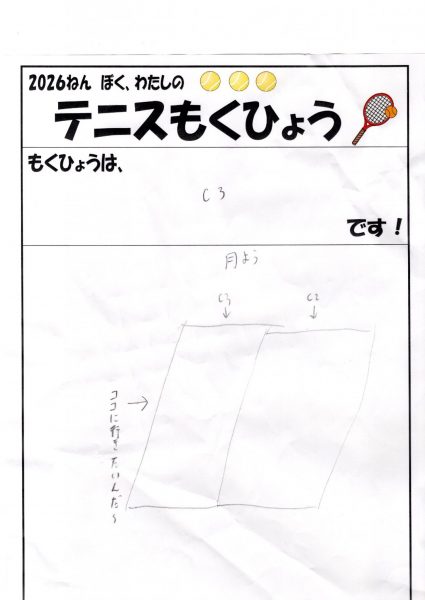 2026ねん ぼく、わたしの
テニスもくひょう
もくひょうは、
C3
です！
月よう
C3 C2
↓ ↓
ココに行きたいんだ〜
→